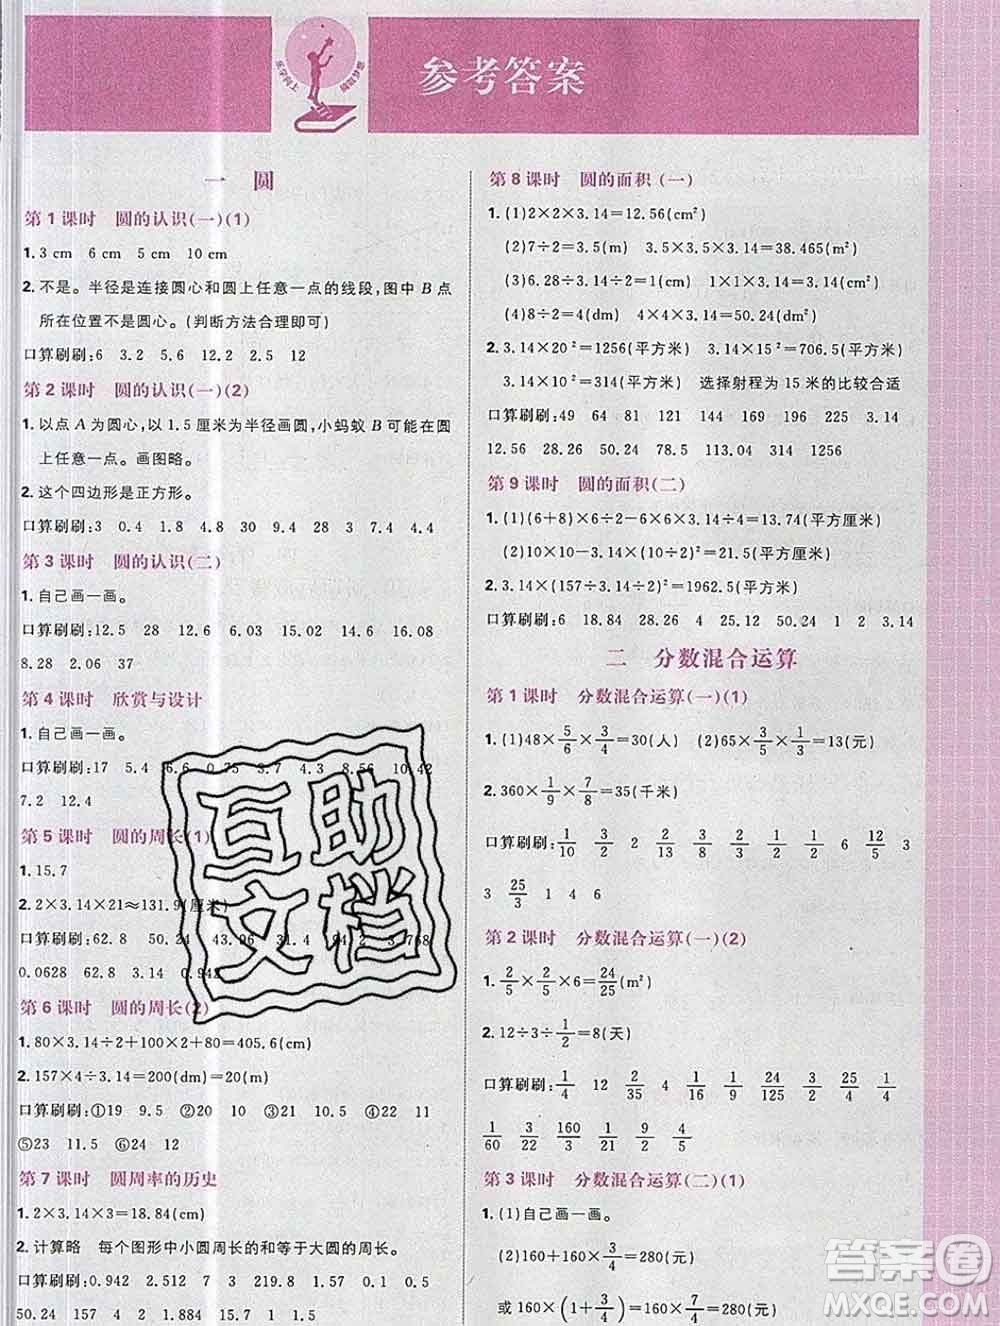 参考答案
乐学向上
一 圆
第 1 课时 圆的认识(一)(1)
1. 3 cm 6 cm 5 cm 10 cm
2. 不是。半径是连接圆心和圆上任意一点的线段,图中 B 点
所在位置不是圆心。(判断方法合理即可)
口算刷刷:6 3.2 5.6 12.2 2.5 12
第 2 课时 圆的认识(一)(2)
1. 以点 A 为圆心,以 1.5 厘米为半径画圆,小蚂蚁 B 可能在圆
圆上任意一点。画图略。
2. 这个四边形是正方形。
口算刷刷:3 0.4 1.8 4.8 30 9.4 28 3 7 6.4 4.4
第 3 课时 圆的认识(二)
1. 自己画一画。
口算刷刷:12.5 28 12.6 15.03 14.02 14.6 16.08
8.28 2.06 37
第 4 课时 欣赏与设计
1. 自己画一画。
口算刷刷:17 5.4 6.6 0.75 3.7 4.3 8.56 10.42
7.2 12.4
第 5 课时 圆的周长(1)
1. 15.7
2. 2×3.14×21≈131.9(厘米)
口算刷刷:62.8 50.24 43.96 31.4 94.2 3.768
0.0628 62.8 3.14 0.942
第 6 课时 圆的周长(2)
1. 80×3.14÷2+100×2+80=405.6(cm)
2. 157×4÷3.14=200(dm)=20(m)
口算刷刷:①19 9.5 ②20 10 ③21 10.5 ④22 11
⑤23 11.5 ⑥24 12
第 7 课时 圆周率的历史
1. 2×3.14×3=18.84(cm)
2. 计算略 每个图形中小圆周长的和等于大圆的周长。
口算刷刷:0.942 314 3 219.8 1.57 12.56 3.5
50.24 157 4 2 1.884 15.7 1 6.5
第 8 课时 圆的面积 (一)
1. (1)2×2×3.14=12.56(cm²)
(2)7÷2=3.5(m) 3.5×3.5×3.14=38.465(m²)
(3)6.28÷3.14÷2=1(m) 1×1×3.14=3.14(m²)
(4)8÷2=4(dm) 4×4×3.14=50.24(dm²)
2. 3.14×20²=1256(平方米) 3.14×15²=706.5(平方米)
3.14×10²=314(平方米) 选择射程为 15 米的比较合适
口算刷刷:49 64 81 121 144 169 196 225 3.14
12.56 28.26 50.24 78.5 113.04 314 1256
第 9 课时 圆的面积(二)
1. (1)(6+8)×6÷2-6×6×3.14÷4=13.74(平方厘米)
(2)10×10-3.14×(10÷2)²=21.5(平方厘米)
2. 3.14×(157÷3.14÷2)²=1962.5(平方米)
口算刷刷:6 18.84 28.26 4 25.12 50.24 1 2 3.14
二 分数混合运算
第 1 课时 分数混合运算(一)(1)
1. (1)48×5/6×3/4=30(人) (2)65×3/5×1/3=13(元)
2. 360×1/9×7/8=35(千米)
口算刷刷:1/10 3/2 2/5 2/3 1/4 1/2 1/2 6 12/5 3
3 25/3 1 4 9
第 2 课时 分数混合运算(一)(2)
1. 2/5×2/5×6=24/25(m²)
2. 12÷3÷1/2=8(天)
口算刷刷:1/4 12 2/5 4/5 1/2 24/125 1/4 2/5
1/60 3/22 160/3 1/21 9/4 8/9
第 3 课时 分数混合运算(二)(1)
1. (1)自己画一画。
(2)160+160×3/4=280(元)
或 160×(1+3/4)=160×7/4=280(元)
互助
文档
答案圈
MXQE.COM